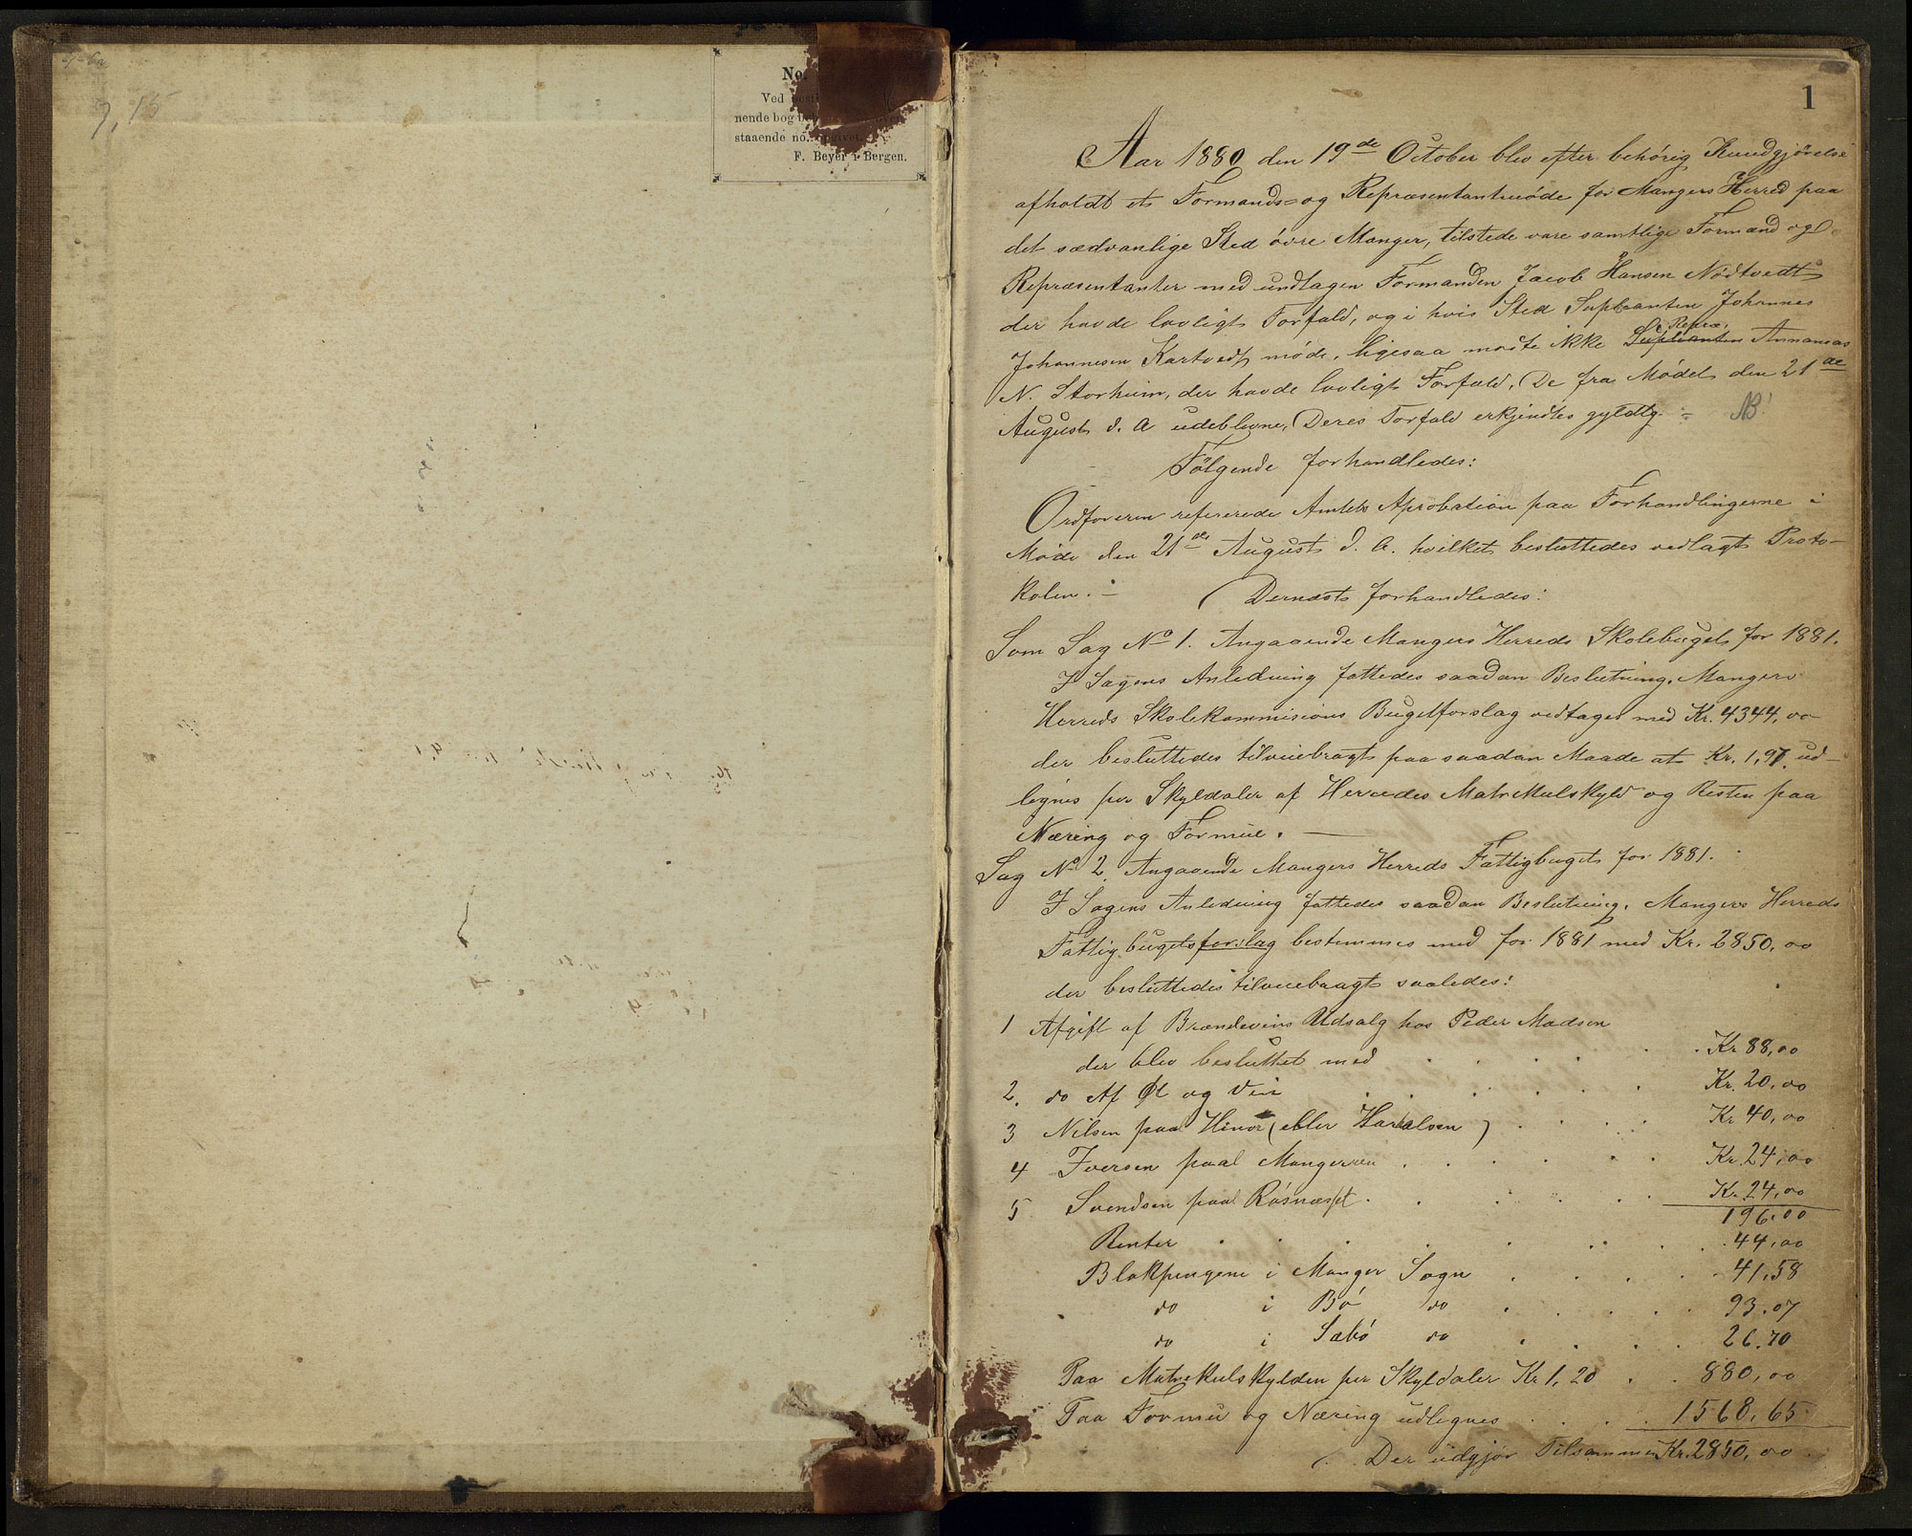 7,15
No.
Ved
nende bog
staaende no. opgivet
F. Beyer i Bergen.
1
Aar 1880 den 19de October blev efter behörig Kundgjörelse
afholdt et Formands- og Repræsentantmöde for Mangers Herred paa
det sædvanlige Sted övre Manger, tilstede vare samtlige Formænd og
Repræsentanter med undtagen Formanden Jacob Hansen Nödtvedt
der havde lovligt Forfald, og i hvis Sted Supleanten Johannes
Johannesen Kartvedt möde, ligesaa mødte ikke Supleanten Repræ. Annanias
N. Storheim, der havde lovligt Forfald. De fra Mödet den 21de
August d. A udeblevne, Deres Forfald erkjendtes gyldig. NB!
Fölgende forhandledes:
Ordföreren refererede Amtets Aprobation paa Forhandlingerne i
Möde den 21de August d. A. hvilket besluttedes vedlagt Proto-
kolen. - Dernæst forhandledes:
Som Sag No 1. Angaaende Mangers Herreds Skolebuget for 1881.
I Sagens Anledning fattedes saadan Beslutning. Mangers
Herreds Skolekommisions Bugetforslag vedtages med Kr. 4344,00
der besluttedes tilveiebragt paa saadan Maade at Kr. 1,97 ud-
lignes per Skyldaler af Herredes Matrikulskyld og Resten paa
Næring og Formue. -
Sag No 2. Angaaende Mangers Herreds Fattigbuget for 1881.
I Sagens Anledning fattedes saadan Beslutning. Mangers Herreds
Fattigbugetsforslag bestemmes med for 1881 med Kr. 2850,00
der besluttedes tilveiebragt saaledes:
1 Afgift af Brændevins Udsalg hos Peder Madsen
der blev besluttet med Kr 88,00
2. do Af Øl og Vin Kr. 20,00
3 Nilsen paa (eller Haralsen) Kr 40,00
4 Iversen paa Mangerøen Kr. 24,00
5 Svendsen paa Kr. 24,00
196,00
Renter 44,00
Blokpengene i Manger Sogn 41,58
do i Bö do 93,07
do i Sæbö do 26,70
Paa Matrikulskylden per Skyldaler Kr 1,20 880,00
Paa Formue og Næring udlignes 1568,65
Der udgjør Tilsammen Kr. 2850,00